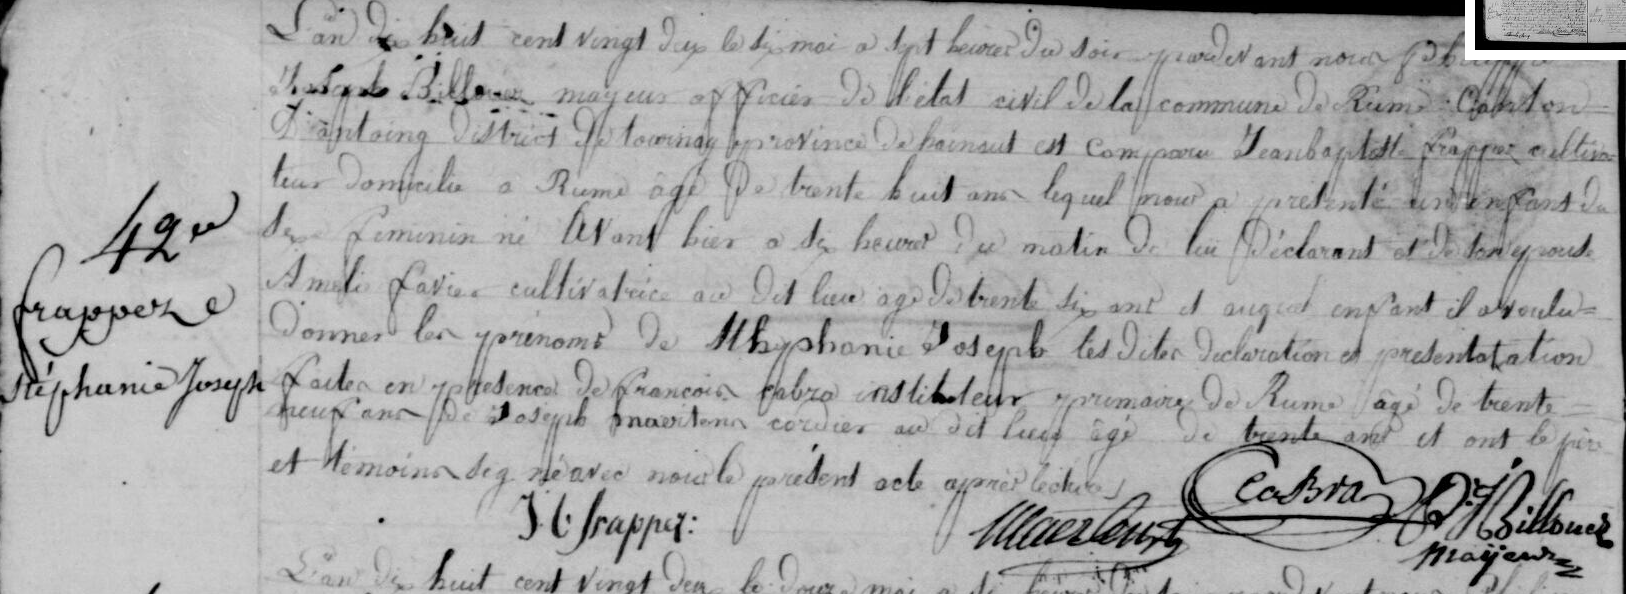 L'an dix huit cent vingt deux le six mai a sept heures du soir pardevant nous
Joseph Billouez mayeur officier de l'état civil de la commune de Rume Canton
D'antoing district de tournay province de hainaut est comparu Jeanbaptiste frappez cultiva
teur domicilié a Rume âgé De trente huit ans lequel nous a présenté un enfant du
42e
sexe feminin né Avant hier a six heures du matin de lui Déclarant et de son epouse
frappez
Amelie favier cultivatrice au dit lieu agé de trente six ans et auquel enfant il a voulu
donner les prénoms de Sthéphanie Joseph les dites declaration et presentatation
Stéphanie Joseph
faites en presence de francois cabra instituteur primaire de Rume âgé de trente
neuf ans de Joseph maertens cordier au dit lieu âgé de trente ans et ont le père
et témoins signé avec nous le présent acte après lecture
CaBra
J. B. frappez:
Maertens
Billouez
mayeur
L'an dix huit cent vingt deux le douze mai a six heures